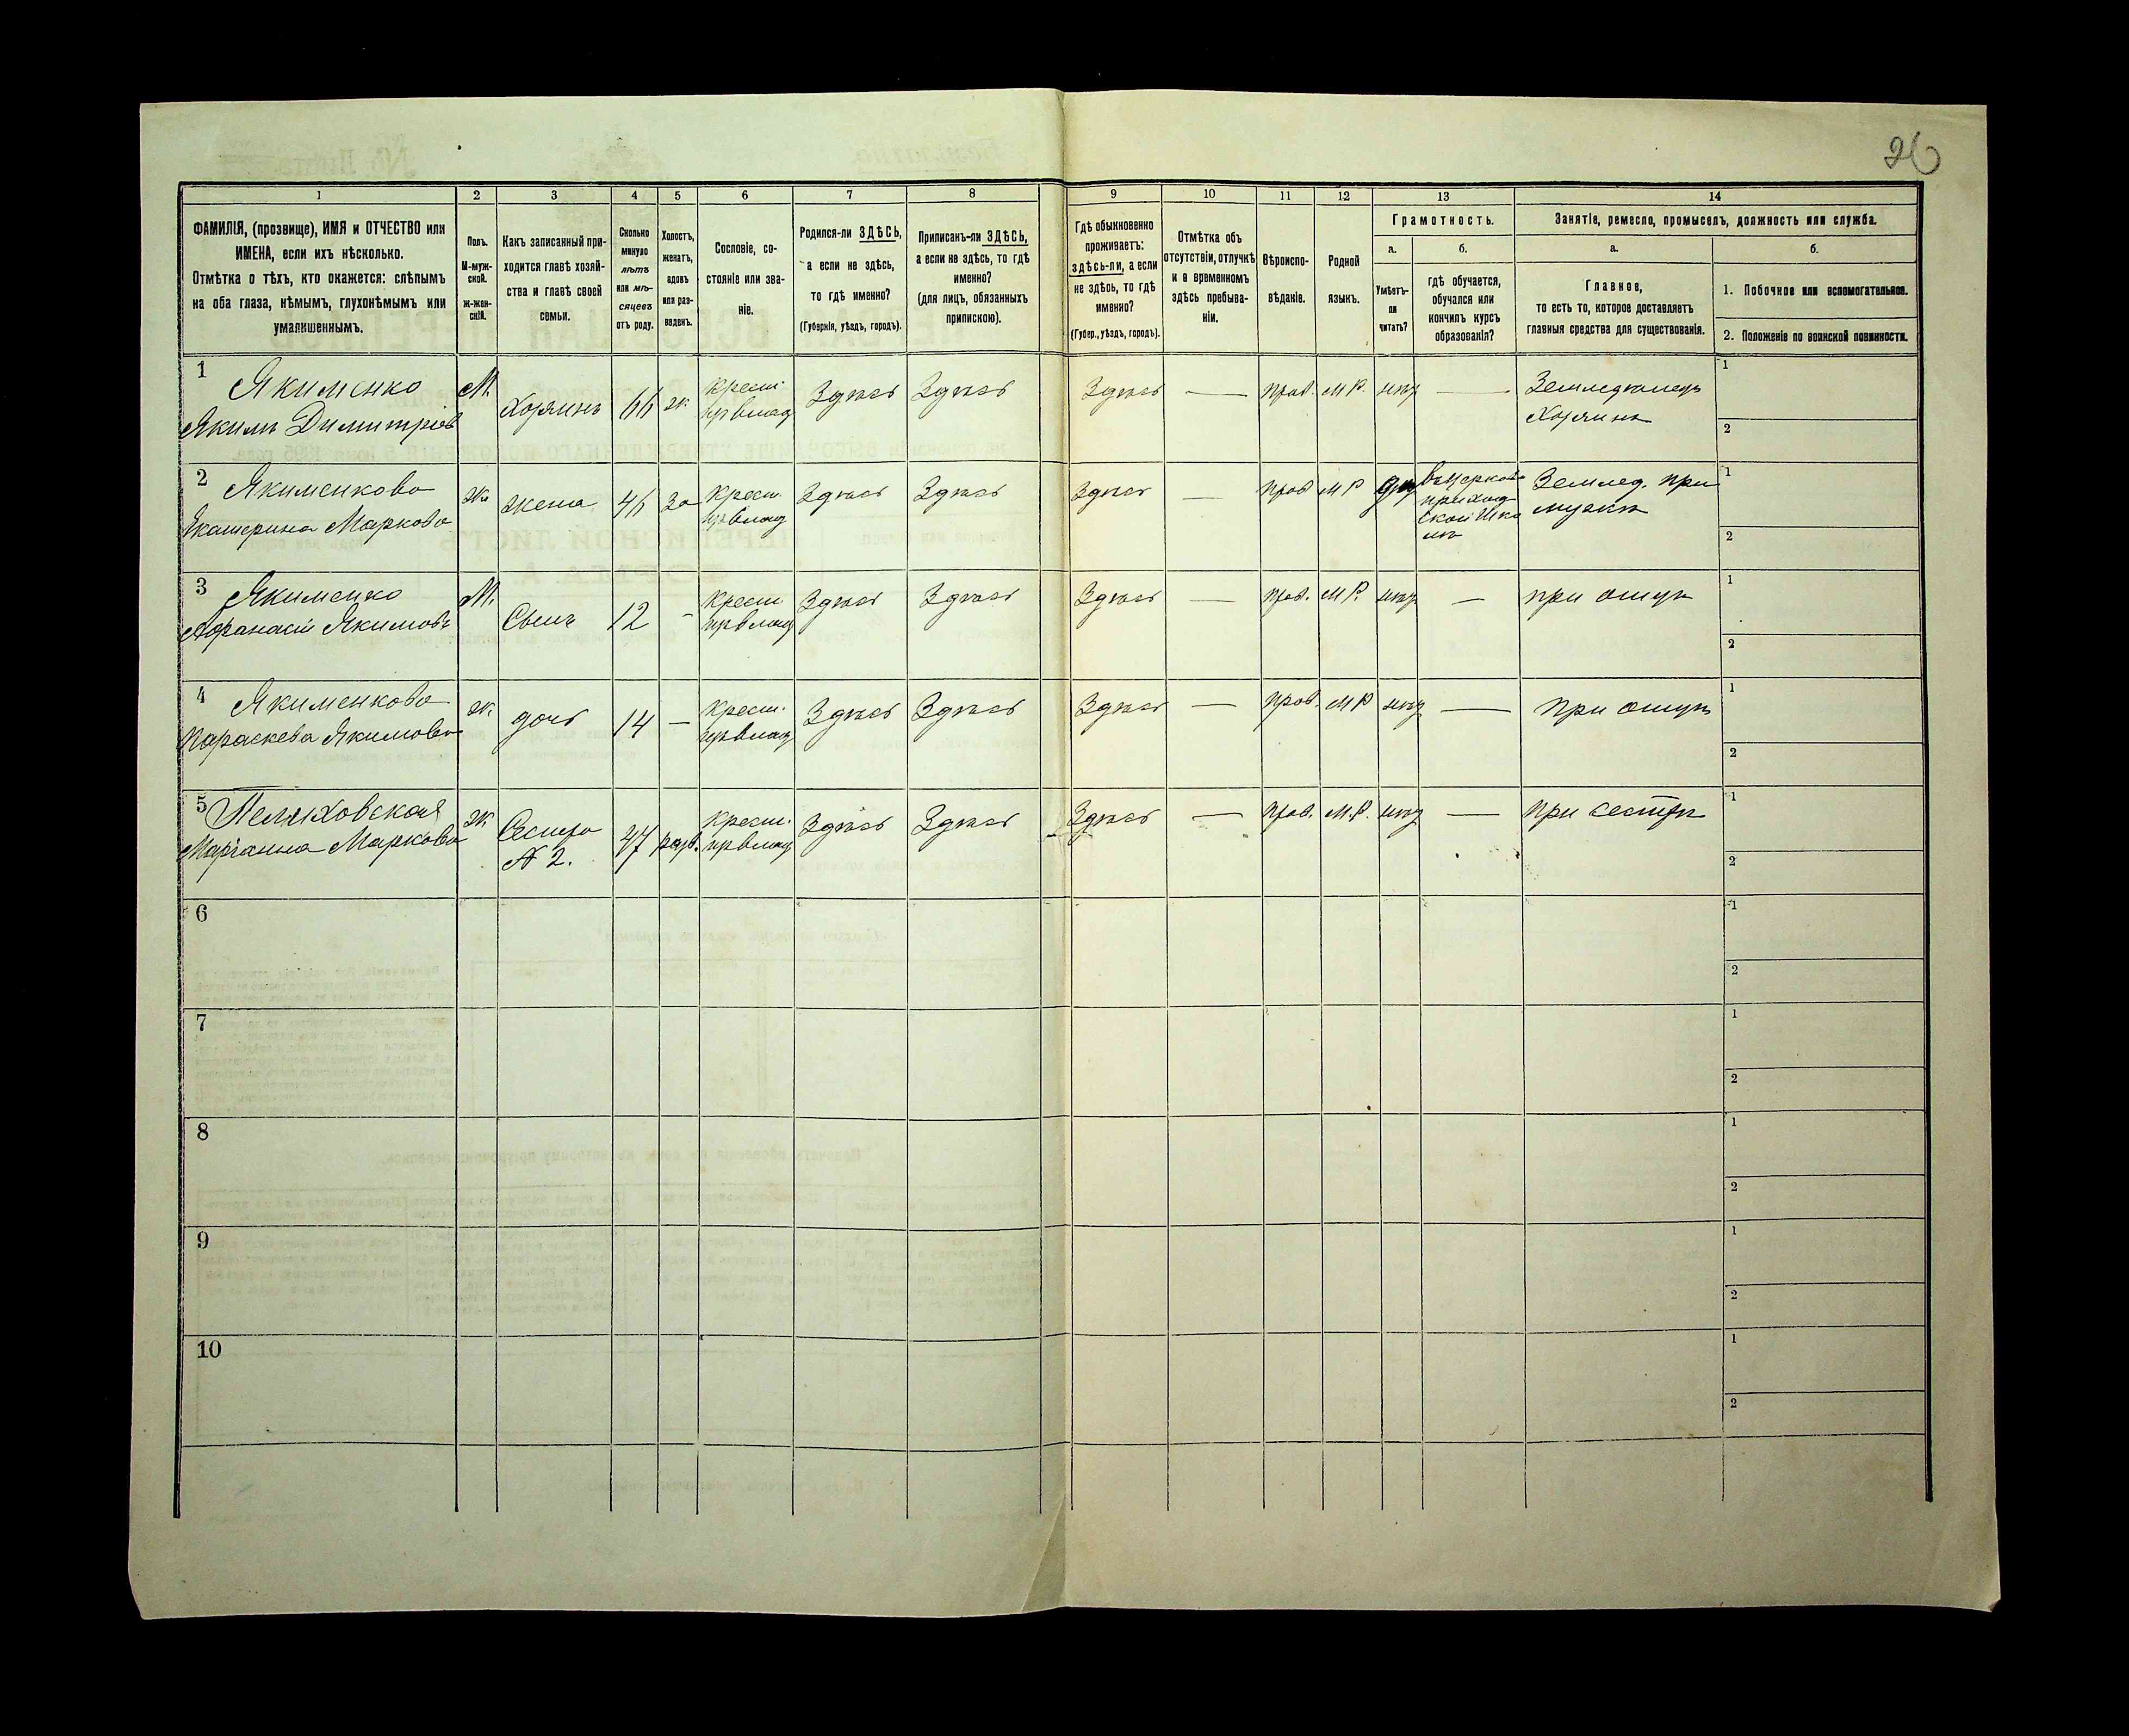 26
1 2 3 4 5 6 7 8 9 10 11 12 13 14
ФАМИЛІЯ, (прозвище), ИМЯ и ОТЧЕСТВО или
ИМЕНА, если ихъ нѣсколько.
Отмѣтка о тѣхъ, кто окажется: слѣпымъ
на оба глаза, нѣмымъ, глухонѣмымъ или
умалишеннымъ.
Полъ.
М-муж-
ской.
ж-жен-
скій.
Какъ записанный при-
ходится главѣ хозяй-
ства и главѣ своей
семьи.
Сколько
минуло
лѣтъ
или мѣ-
сяцевъ
отъ роду.
Холостъ,
женатъ,
вдовъ
или раз-
веденъ.
Сословіе, со-
стояніе или зва-
ніе.
Родился-ли ЗДѢСЬ,
а если не здѣсь,
то гдѣ именно?
(Губернія, уѣздъ, городъ).
Приписанъ-ли ЗДѢСЬ,
а если не здѣсь, то гдѣ
именно?
(для лицъ, обязанныхъ
припискою).
Гдѣ обыкновенно
проживаетъ:
здѣсь-ли, а если
не здѣсь, то гдѣ
именно?
(Губер., уѣздъ, городъ).
Отмѣтка объ
отсутствіи, отлучкѣ
и о временномъ
здѣсь пребыва-
ніи.
Вѣроиспо-
вѣданіе.
Родной
языкъ.
Грамотность.
а.
Умѣетъ-
ли
читать?
б.
гдѣ обучается,
обучался или
кончилъ курсъ
образованія?
Занятіе, ремесло, промыселъ, должность или служба.
а.
Главное,
то есть то, которое доставляетъ
главныя средства для существованія.
б.
1. Побочное или вспомогательное.
2. Положеніе по воинской повинности.
1 Якименко
Якимъ Димитріев
М. Хозяинъ 66 ж. Крест. Здѣсь Здѣсь Здѣсь — прав. М.Р. нѣт — Земледѣлецъ
Хозяинъ
1
2
2 Якименкова
Екатерина Маркова
ж. жена 46 за Крест. Здѣсь Здѣсь Здѣсь — прав М Р да
въ Церков
приход
ской Шко
лѣ
Землед. при
мужѣ
1
2
3 Якименко
Афанасій Якимовъ
М. Сынъ 12 - Крест. Здѣсь Здѣсь Здѣсь — прав. М.Р. нѣт — при отцѣ
1
2
4 Якименкова
Параскева Якимова
ж. дочь 14 — Крест. Здѣсь Здѣсь Здѣсь — прав. М Р нѣт — при отцѣ
1
2
5 Пелиховская
Маріанна Маркова
ж Сестра
№ 2.
47 Крест. Здѣсь Здѣсь Здѣсь — прав. М.Р. нѣт — при сестрѣ
1
2
6
1
2
7
1
2
8
1
2
9
1
2
10
1
2